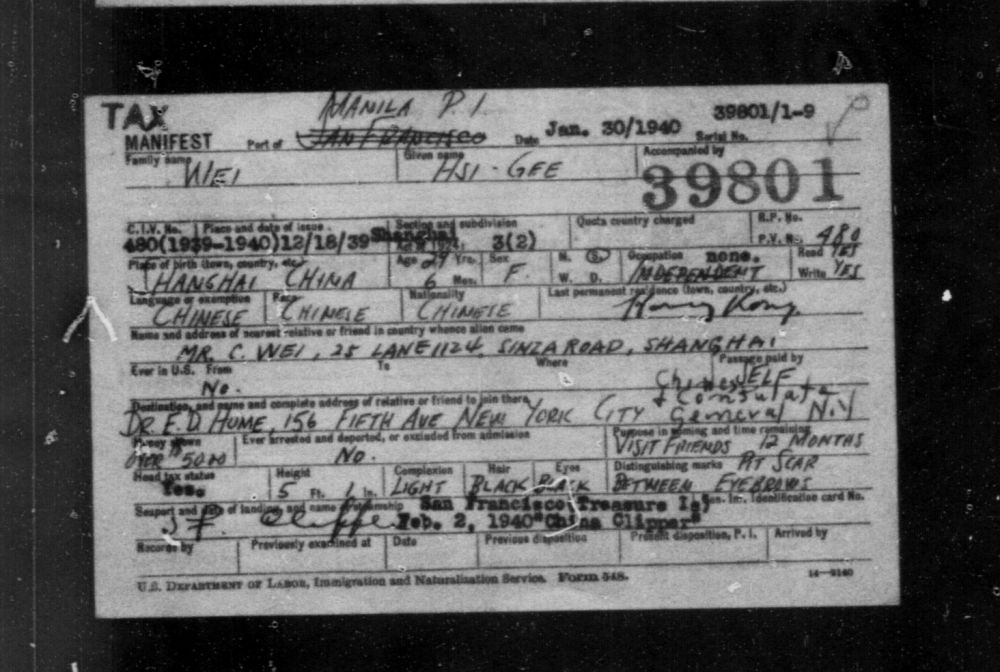 TAX MANILA P.I. 39801/1-9
MANIFEST Port of SAN FRANCISCO Date Jan. 30/1940 Serial No.
Family name Given name Accompanied by
WEI HSI-GEE 39801
C.I.V. No. Place and date of issue Section and subdivision Quota country charged R.P. No.
480(1939-1940)12/18/39 Shanghai 3(2) P.V. No. 480
Place of birth (town, country, etc.) Age 29 Yrs. Sex M. S. Occupation none. Read YES
SHANGHAI CHINA 6 Mos. F. W. D. INDEPENDENT Write YES
Language or exemption Race Nationality Last permanent residence (town, country, etc.)
CHINESE CHINESE CHINESE Hong Kong.
Name and address of nearest relative or friend in country whence alien came
MR. C. WEI, 25 LANE 1124, SINZA ROAD, SHANGHAI
Ever in U.S. From To Where Passage paid by
No. SELF
Destination, and name and complete address of relative or friend to join there Chinese Consulate
DR E.D. HUME, 156 FIFTH AVE NEW YORK CITY & General N.Y
Money shown Ever arrested and deported, or excluded from admission Purpose in coming and time remaining
OVER $50.00 NO. VISIT FRIENDS 12 MONTHS
Head tax status Height Complexion Hair Eyes Distinguishing marks PIT SCAR
Yes. 5 Ft. 1 In. LIGHT BLACK BLACK BETWEEN EYEBROWS
Seaport and date of landing, and name of steamship San Francisco(Treasure Is) Identification card No.
SF Clipper Feb. 2, 1940"China Clipper"
Records by Previously examined at Date Previous disposition Present disposition, P.I. Arrived by
U.S. DEPARTMENT OF LABOR, Immigration and Naturalization Service. Form 548. 14—2160